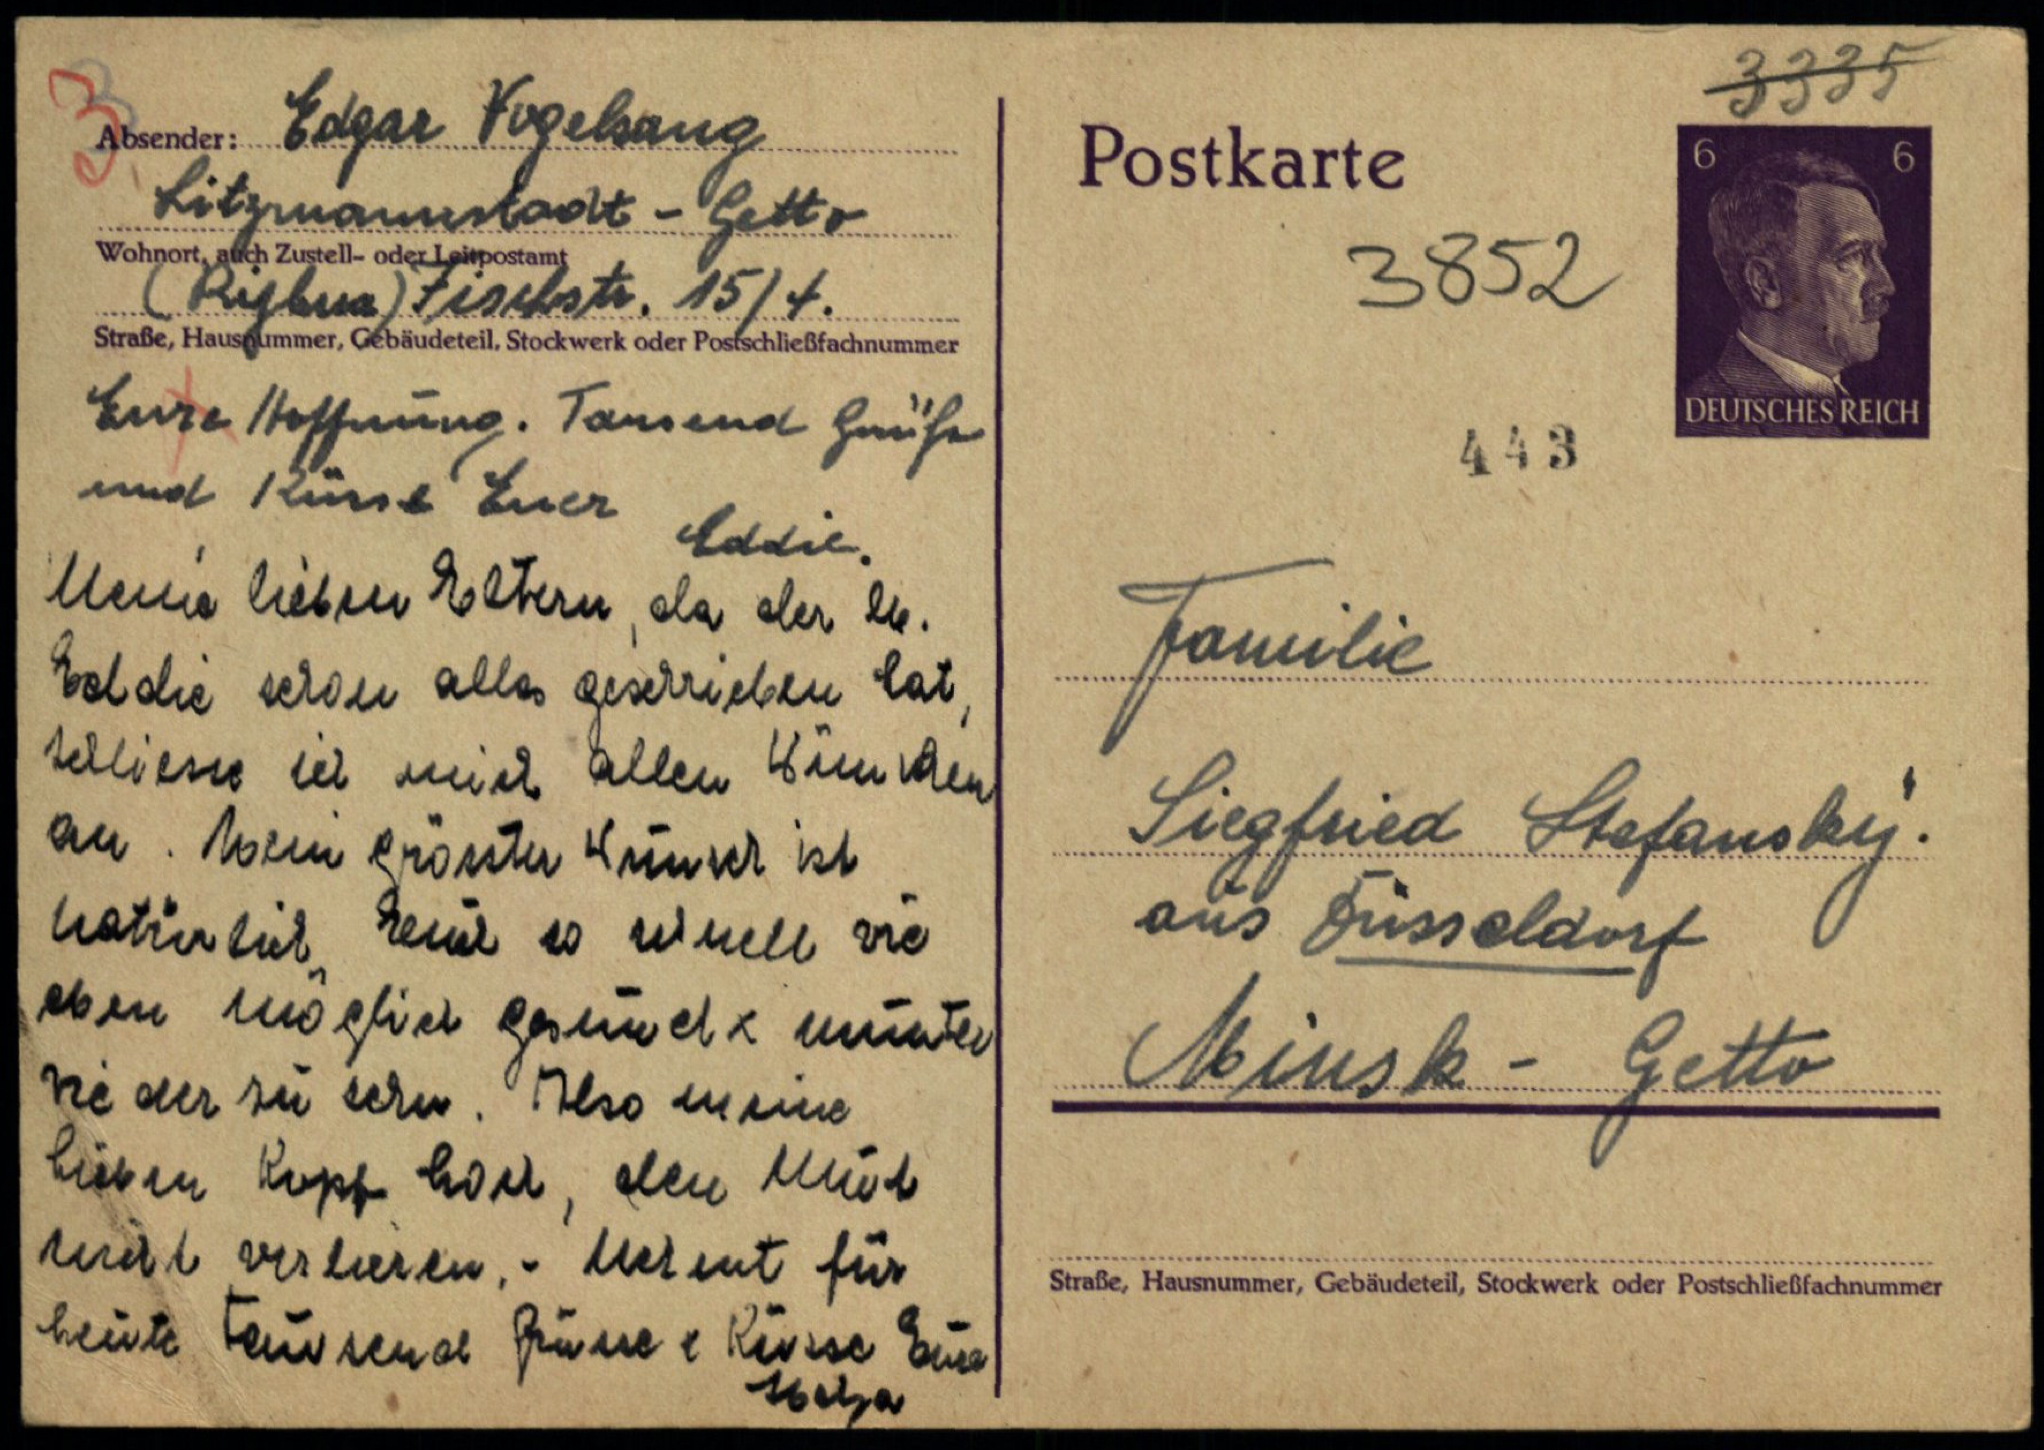 3
Absender: Edgar Vogelsang
Litzmannstadt - Getto
Wohnort, auch Zustell- oder Leitpostamt
Fischstr. 15/4.
Straße, Hausnummer, Gebäudeteil, Stockwerk oder Postschließfachnummer
Eure Hoffnung. Tausend Grüße
und Küsse Euer
Eddie.
Meine lieben Eltern, da der lb.
Eddie schon alles geschrieben hat,
schliesse ich mich allen Wünschen
an. Mein grösster Wunsch ist
natürlich, Euch so schnell wie
eben möglich gesund & munter
wieder zu sehn. Also meine
Lieben Kopf hoch, den Mut
nicht verlieren. - Nehmt für
heute Tausend Grüsse & Küsse Eure
Helga
3335
Postkarte
6 6
3852
DEUTSCHES REICH
443
Familie
Siegfried Stefansky.
aus Düsseldorf
Minsk - Getto
Straße, Hausnummer, Gebäudeteil, Stockwerk oder Postschließfachnummer